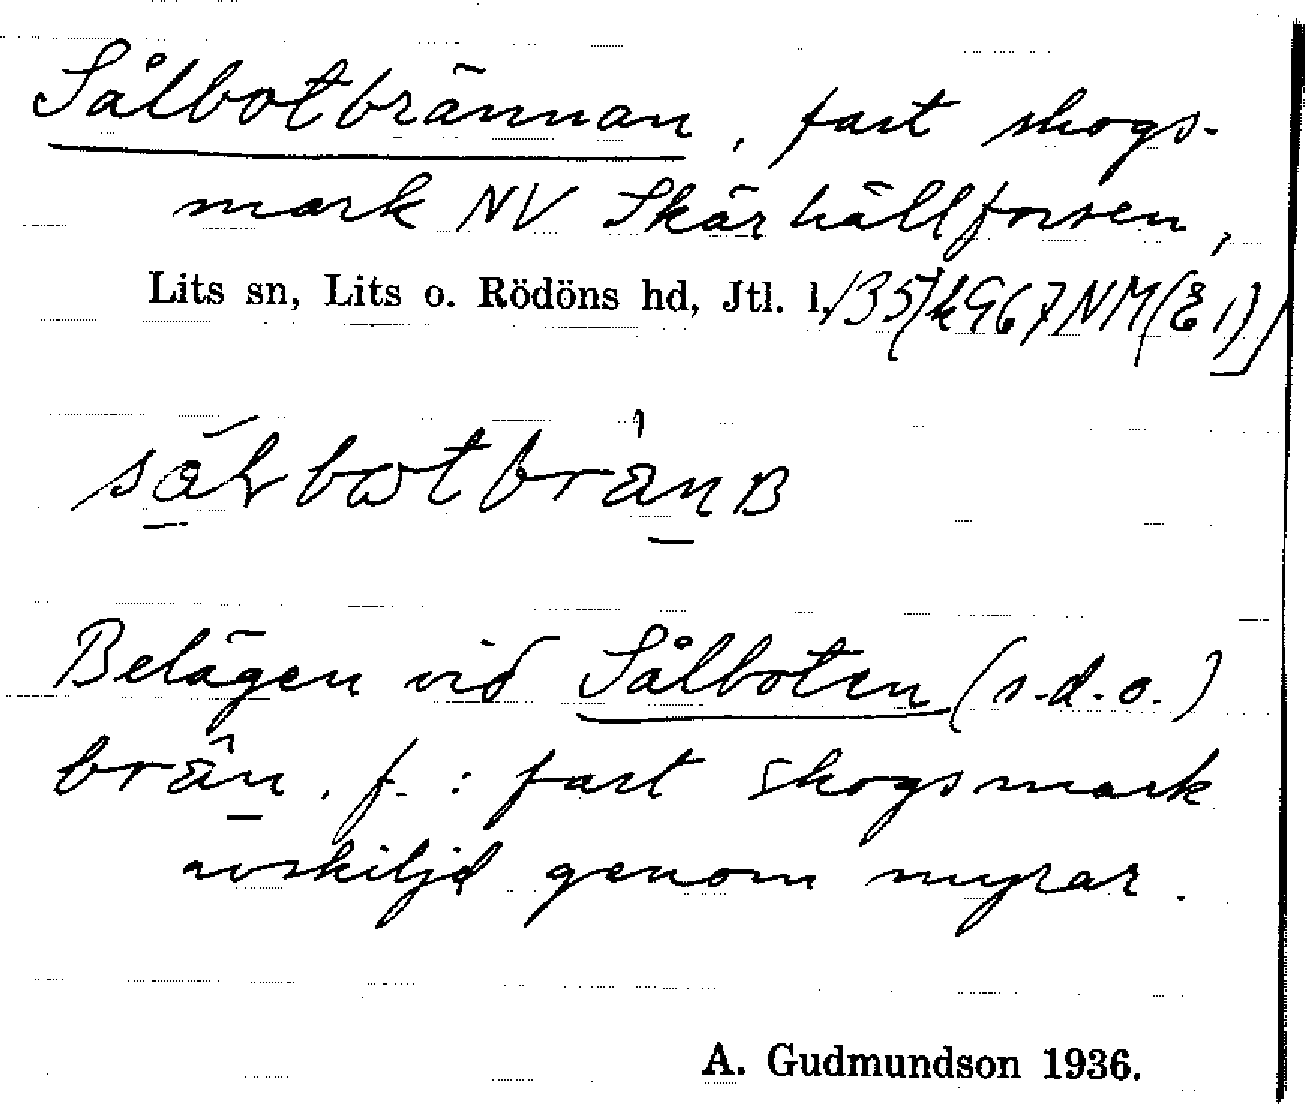 Sålbotbrännan, fast skogs-
mark NV Skärhällforsen,
Lits sn, Lits o. Rödöns hd, Jtl. l,
Belägen vid Sålboten (s.d.o.)
brän. f. : fast skogsmark
avskiljd genom myrar.
A. Gudmundson 1936.